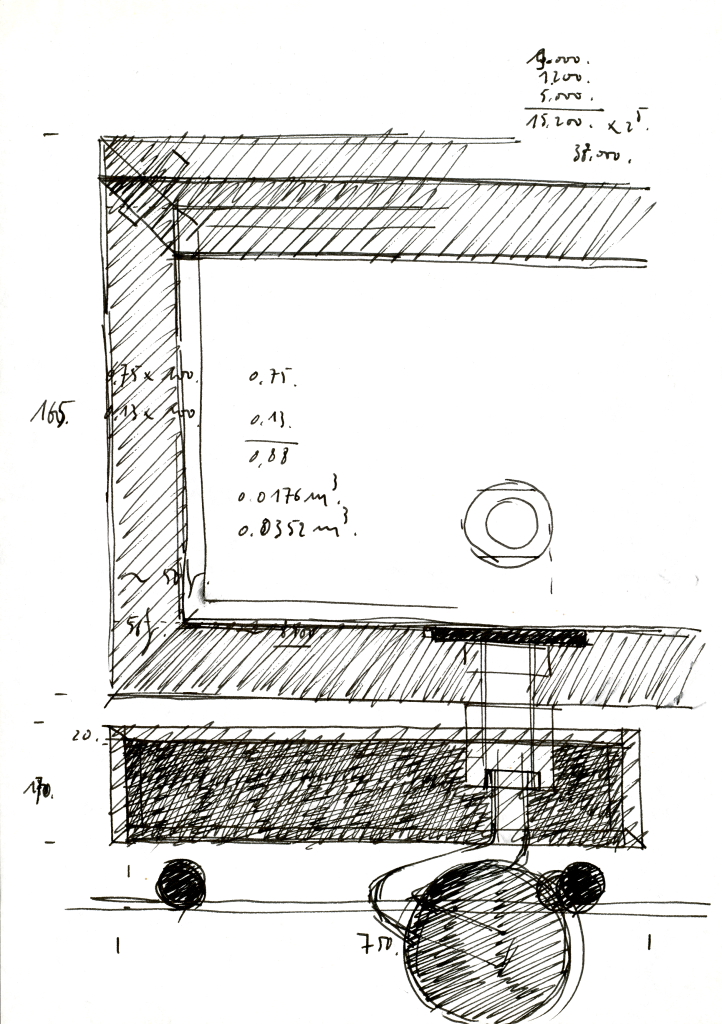 9.000.
1.200.
5.000.
15.200. x 2⁵.
38.000.
0.75 x 100.
0.75.
165.
0.13 x 100.
0.13.
0,88
0.0176 m³.
0.0352 m³.
20.
170.
750.